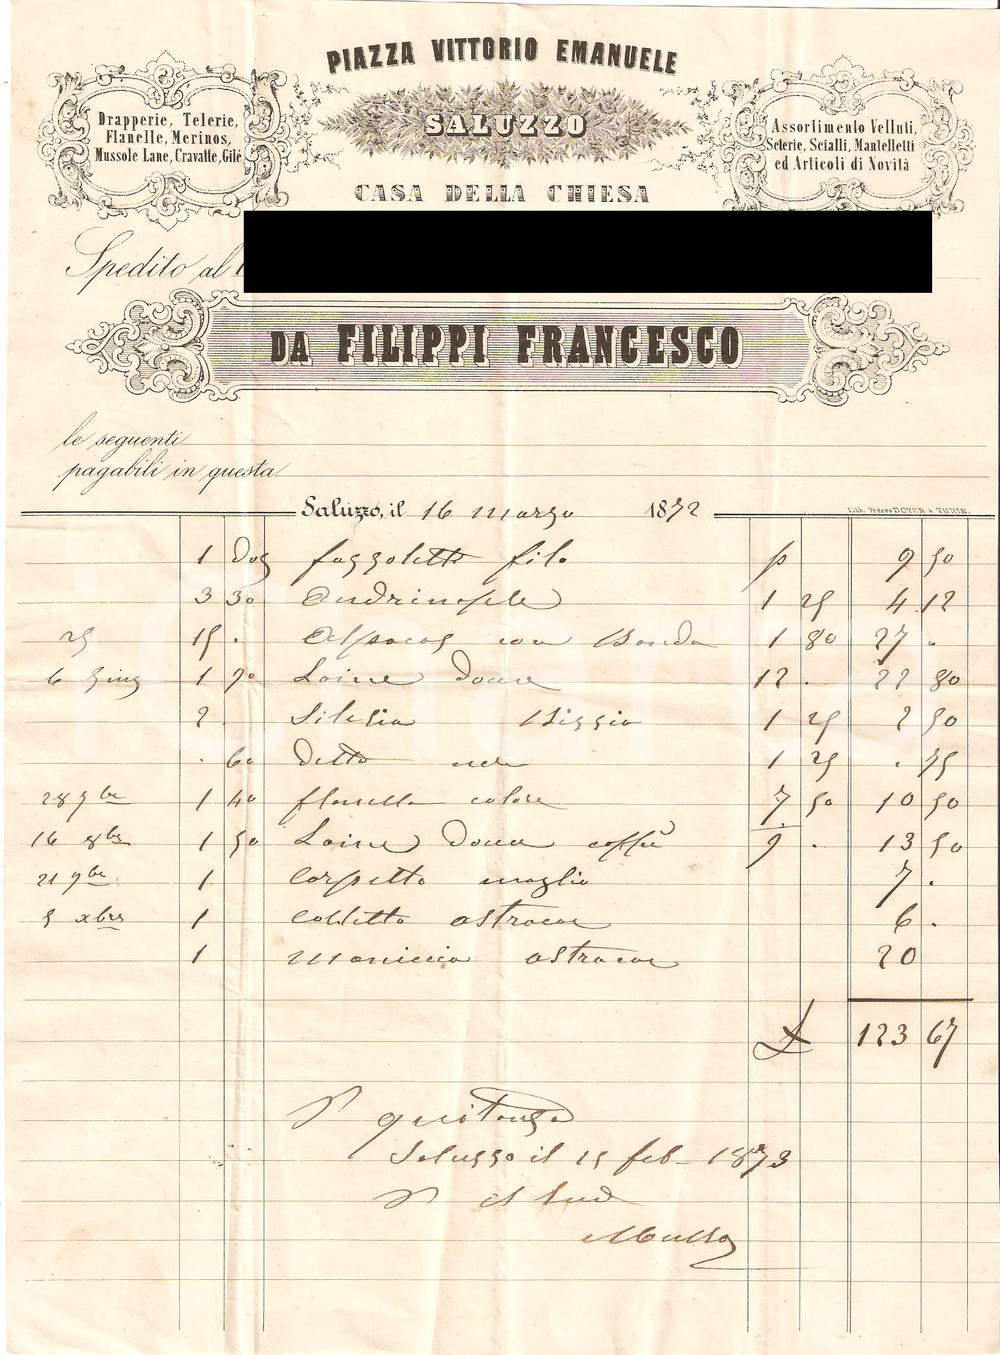 PIAZZA VITTORIO EMANUELE
SALUZZO
CASA DELLA CHIESA
Drapperie, Telerie,
Flanelle, Merinos,
Mussole Lane, Cravatte, Gilé
Assortimento Velluti,
Seterie, Scialli, Mantelletti
ed Articoli di Novità
Spedito al
DA FILIPPI FRANCESCO
le seguenti
pagabili in questa
Saluzzo, il 16 marzo 1872
Lith. Frères DOYEN à TURIN.
1 doz fazzoletti filo p 9 50
3 30 Andrinople 1 25 4 12
25 15 . Alpacas con Banda 1 80 27 .
6 Giug 1 90 Laine douce 12 . 22 80
2 . Silesia Biggia 1 25 2 50
. 60 detto nera 1 25 . 75
28 7bre 1 40 flanella colore 7 50 10 50
16 8bre 1 50 Laine douce caffè 9 . 13 50
21 9bre 1 corpetto maglia 7 .
5 xbre 1 colletto astracan 6 .
1 maniccia astracan 20
£ 123 67
P quitanza
Saluzzo il 15 feb- 1873